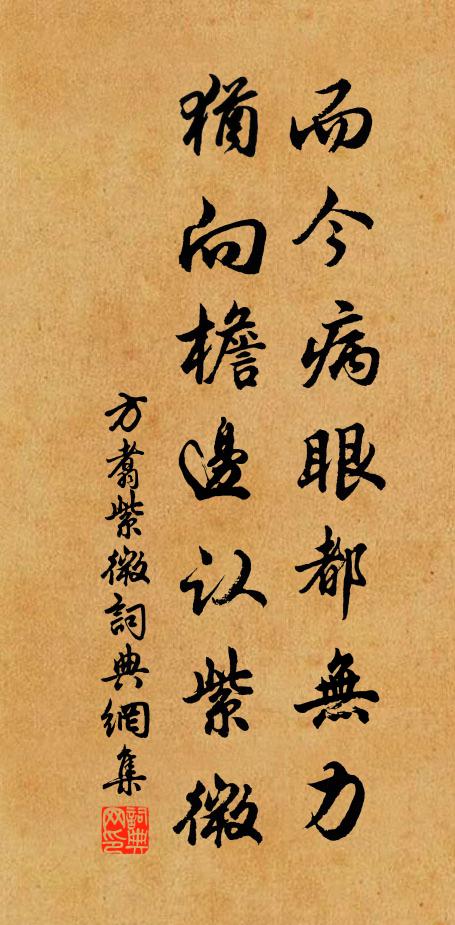 而今病眼都無力
猶向檐邊認紫微
方翥紫微詞典網集
詞典網印